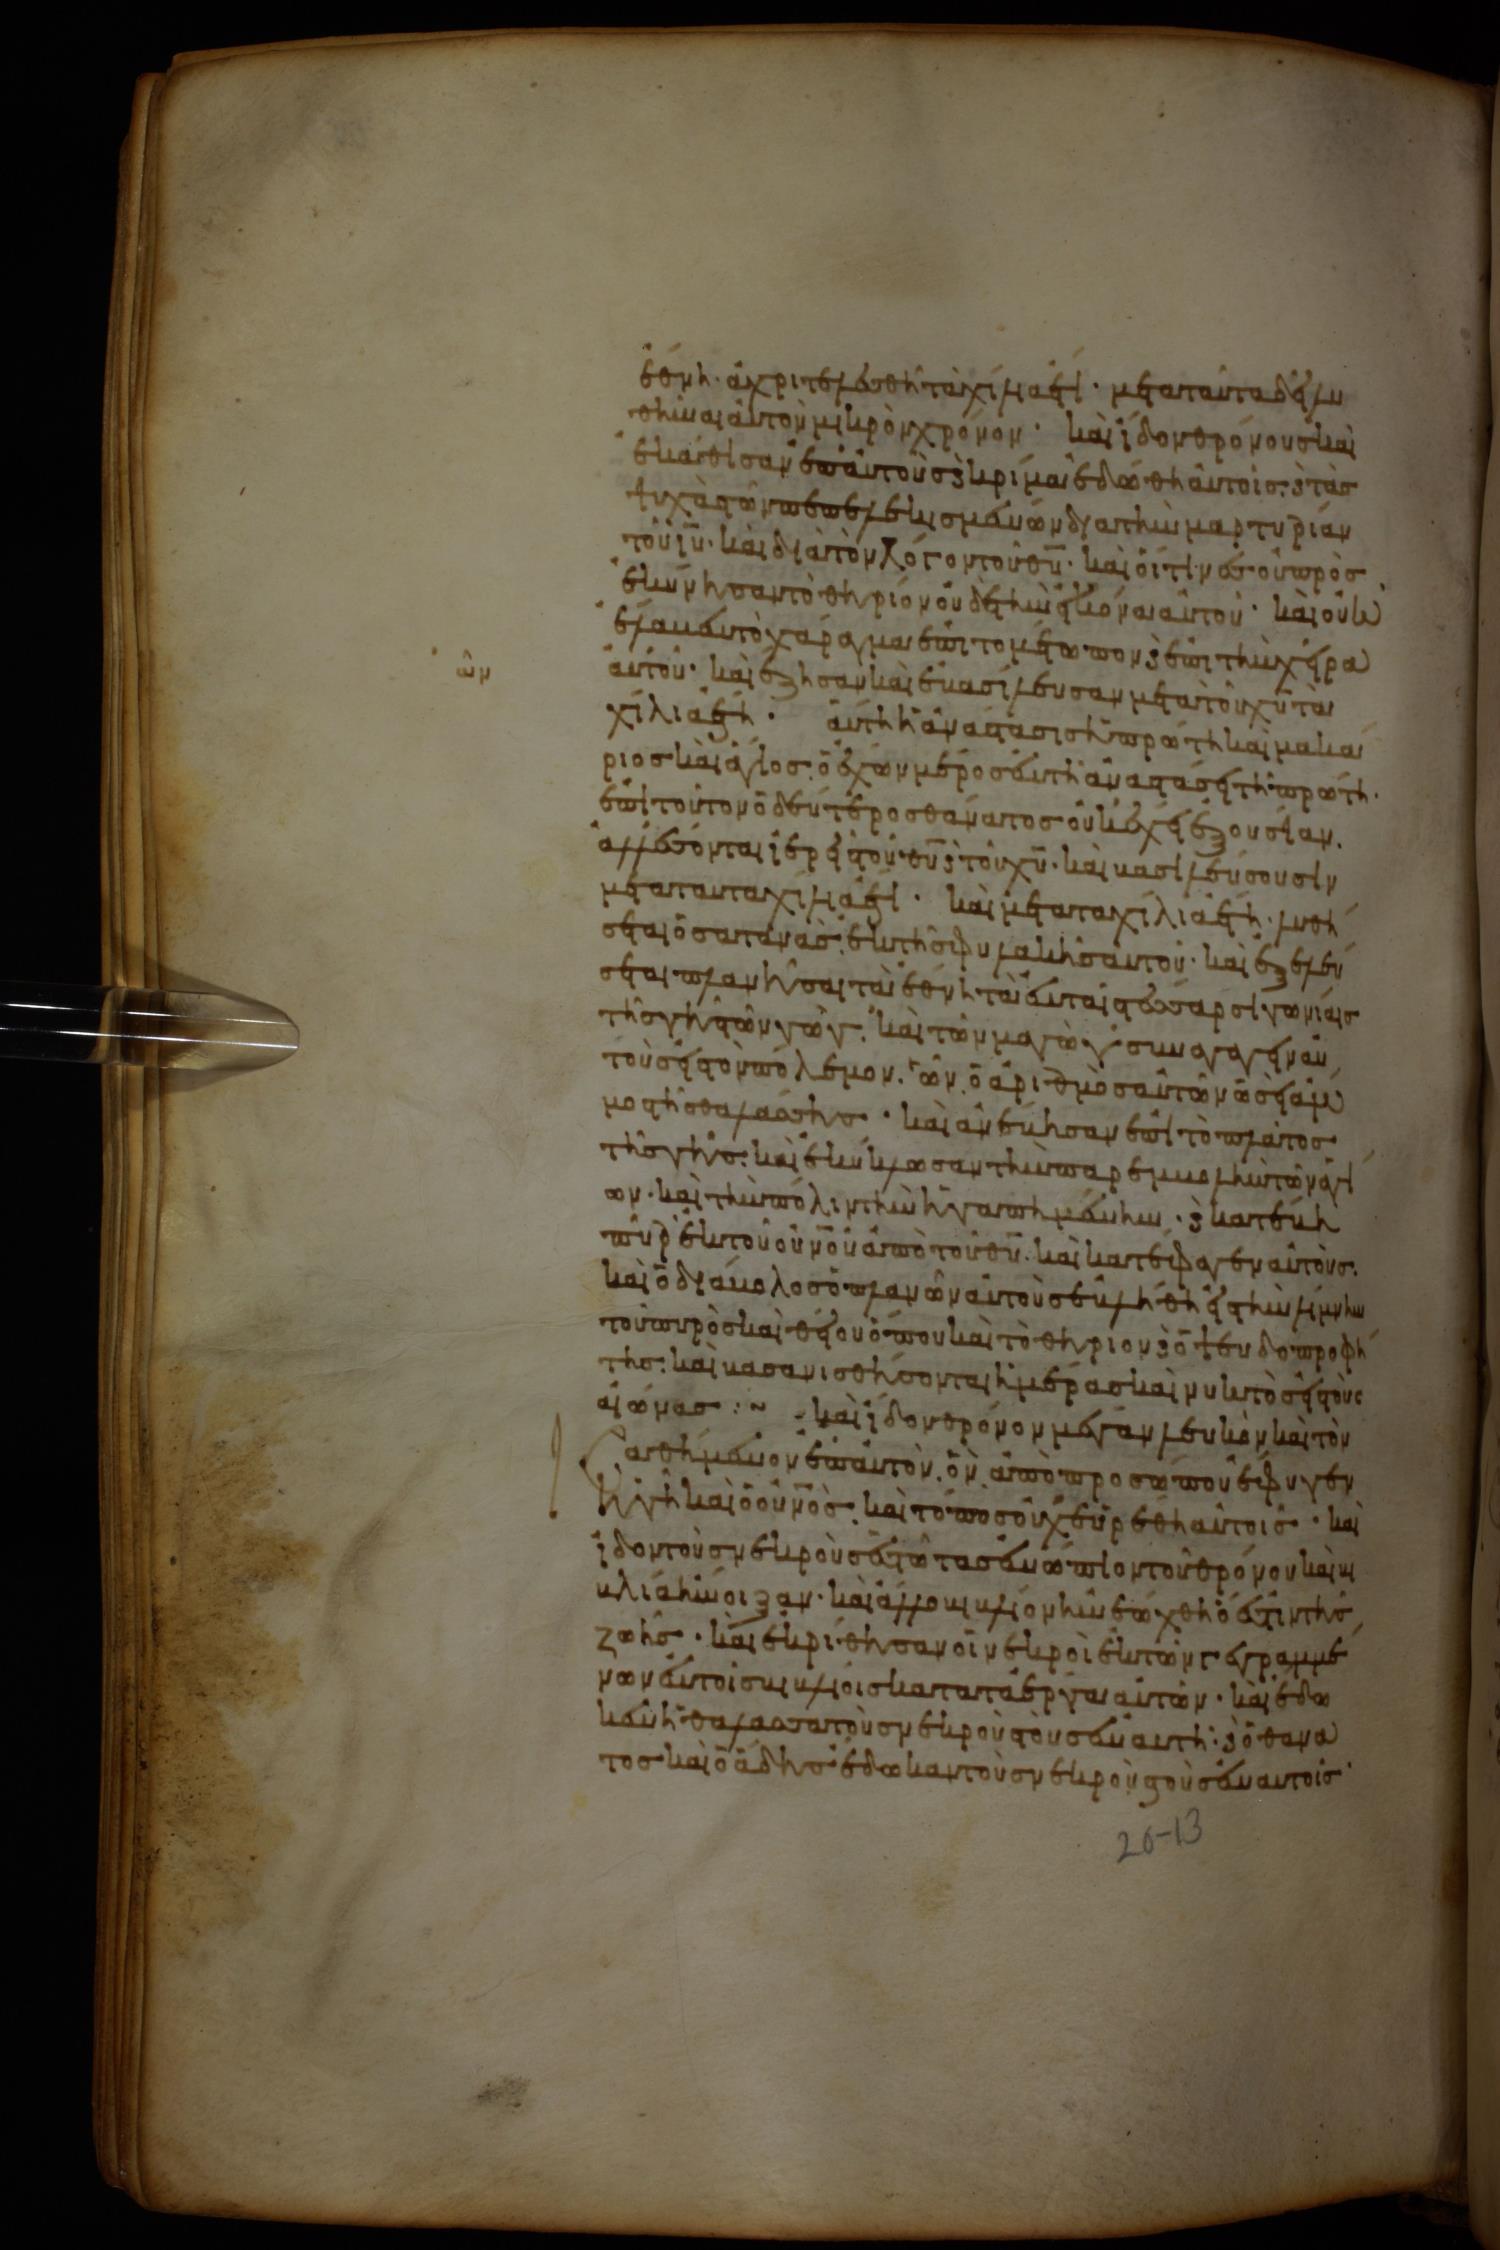 ἔθνη· ἄχρι τελεσθῆ τὰ χίλια ἔτη· μετα ταῦτα δεῖ λυ
θῆναι αὐτὸν μικρὸν χρόνον· καὶ ἴδον θρόνους καὶ
ἐκάθισαν ἐπ αὐτοὺς ϗ κρίμα ἐδώθη αὐτοῖς· ϗ τὰς
ψυχὰς τῶν πεπελεκισμένων δια τὴν μαρτυρίαν
τοῦ ιυ· καὶ διὰ τὸν λόγον τοῦ θυ· καὶ οἵτινες οὐ προς
εκύνησαν τὸ θηρίον οὐδὲ τὴν εἰκόνα αὐτοῦ· καὶ οὐκ
ἔλαβον τὸ χάραγμα ἐπι το μέτωπον ϗ ἐπι τὴν χεῖρα
ὧν
αὐτοῦ· καὶ ἔζησαν καὶ ἐβασίλευσαν μετα τοῦ χυ τα
χίλια ἔτη· αὕτη ἡ ἀνάστασις ἡ πρώτη καὶ μακά
ριος καὶ ἅγιος ὁ ἔχων μέρος ἐν τῆ ἀναστάσει τῆ πρώτη·
ἐπὶ τούτον ὁ δεύτερος θάνατος οὐκ ἔχει ἐξουσίαν.
ἀλλ ἔσονται ἱερεῖς τοῦ θυ ϗ τοῦ χυ· καὶ βασιλεύσουσιν
μετα ταυτα χίλια ἔτη· καὶ μετα τα χίλια ἔτη· λυθή
σεται ὁ σατανᾶς ἐκ τῆς φυλακῆς αυτοῦ· καὶ ἐξελεύ
σεται πλανῆσαι τὰ ἔθνη τὰ ἐν ταῖς τέσσαρσι γωνίαις
τῆς γῆς τῶν γώγ· καὶ τῶν μαγὼγ συναγαγεῖν αὐ
τοὺς εἰς τὸν πόλεμον. ὧν ὁ ἀριθμὸς αὐτῶν ὡσεὶ ἄμ
μος τῆς θαλάσσης· καὶ ἀνέβησαν ἐπὶ τὸ πλάτος
τῆς γῆς· καὶ ἐκύκλωσαν τὴν παρεμβολὴν τῶν ἁγί
ων· καὶ τὴν πόλιν τὴν ἠγαπημένην· ϗ κατέβη
πῦρ ἐκ τοῦ οὐνου ἀπὸ τοῦ θυ· καὶ κατέφαγεν αὐτοὺς.
καὶ ὁ διάβολος ὁ πλανῶν αὐτοὺς ἐβλήθη εἰς τὴν λίμνην
τοῦ πυρὸς καὶ θείου ὅπου καὶ τὸ θηρίον ϗ ὁ ψευδοπροφή
της· καὶ βασανισθήσονται ἡμέρας καὶ νυκτὸς εἰς τοὺς
αἰώνας :~ καὶ ἴδον θρόνον μέγαν λευκὸν καὶ τὸν
καθήμενον ἐπ αὐτὸν. ὃν ἀπὸ προσώπου ἔφυγεν
ἡ γῆ καὶ ὁ οὐνὸς· καὶ τόπος οὐχ εὑρέθη αὐτοῖς· καὶ
ἴδον τοὺς νεκροὺς ἑστῶτας ἐνώπιον τοῦ θρόνου καὶ βι
βλία ἤνοιξαν· καὶ ἄλλο βιβλίον ἠνεώχθη ὅ ἐστιν τῆς
ζωῆς· καὶ ἐκρίθησαν οἱ νεκροὶ ἐκ τῶν γεγραμμέ
νων ἐν τοῖς βιβλίοις κατα τα ἔργα αὐτῶν· καὶ ἔδω
κεν ἡ θάλασσα τοὺς νεκροὺς τοὺς ἐν αυτῆ· ϗ ὁ θάνα
τος καὶ ὁ ἅδης ἔδωκαν τοὺς νεκροὺς τοὺς ἐν αυτοῖς·
20-13